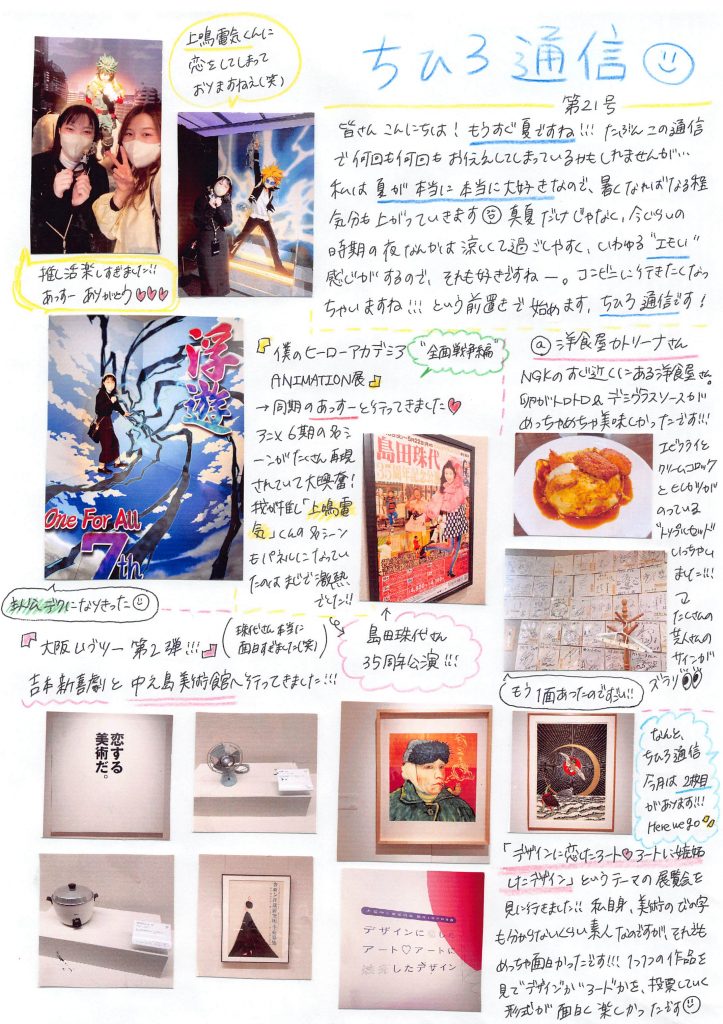 上鳴電気くんに
恋をしてしまって
おりますねえ(笑)
ちひろ通信
第21号
皆さんこんにちは！もうすぐ夏ですね!!! たぶんこの通信
で何回も何回もお伝えしてしまっているかもしれませんが…
私は夏が本当に本当に大好きなので、暑くなればなる程
気分も上がっていきます 真夏だけじゃなく、今ぐらいの
時期の夜なんかは涼しくて過ごしやすく、いわゆる"エモい"
感じがするので、それも好きですねー。コンビニに行きたくなっ
ちゃいますね!!! という前置きで始めます、ちひろ通信です!
推し活楽しすぎました!!
あっすー ありがとう♥♥♥
浮遊
One For All
7th
まんまんデクになりきった
『僕のヒーローアカデミア "全面戦争編"
ANIMATION展』
→同期のあっすーと行ってきました♥
アニメ6期の名シ
ーンがたくさん再現
されていて大興奮!
我が推し「上鳴電
気」くんの名シーン
もパネルになってい
たのはまじで激熱
でした!!
島田珠代
35周年記念公演
↑
島田珠代さん
35周年公演!!!
(珠代さん本当に
面白すぎました(笑))
@洋食屋カトリーナさん
NGKのすぐ近くにある洋食屋さん。
卵がトロトロ&デミグラスソースが
めっちゃめちゃ美味しかったです!!!
エビフライと
クリームコロッケ
とヒレカツが
のっている
"トリプルセット"
いっちゃい
ました!!!
たくさんの
芸人さんの
サインが
ズラリ
もう1面あったのですごい!!
『大阪ラブツー 第2弾!!!』
吉本新喜劇と中之島美術館へ行ってきました!!!
恋する
美術だ。
デザインに恋した
アート♡アートに
嫉妬したデザイン
なんと、
ちひろ通信
今月は2枚目
があります!!!
Here we go
「デザインに恋したアート♡アートに嫉妬
したデザイン」というテーマの展覧会を
見に行きました!! 私自身、美術のびの字
も分からないくらい素人なのですが、それでも
めっちゃ面白かったです!!! 1つ1つの作品を
見て"デザイン"か"アート"かを、投票していく
形式が面白く楽しかったです